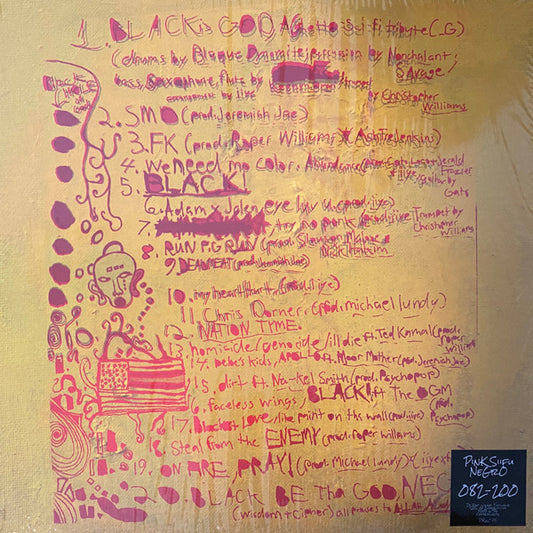 1. BLACK is GOD, A Ghetto Sci-fi tribute (_G)
(drums by Blaque Dynamite, percussion by Nonchalant Savage,
bass, saxophone, flute by
by Christopher Williams
2. SMD (prod. Jeremiah Jae)
3. FK (prod. Roper Williams X Ashtrejenkins)
4. we need mo color. Abundance
guitar by Gats
5. BLACK!
6. Adam x Jalen, eye luv u. (prod. iiye)
7. no punk (prod. iiye Trumpet by Christopher Williams
8. RUN P.G RUN (prod. Slauson Malone X Nick Hakim
9. DEADMEAT (prod. Jeremiah Jae)
10. my heart hurt. (prod. iiye)
11. Chris Dorner. (prod. michael lundy)
NATION TYME.
13. homicide/genocide/ill die ft. Ted Kamal (prod. roper williams)
14. bebe's kids, APOLLO ft. Moor Mother (prod. Jeremiah Jae)
15. dirt ft. Na-kel Smith (prod. Psychopop)
16. faceless wings, BLACK! ft The OGM (prod. Psychopop)
17. Blackest Love/like paint on the wall (prod. iiye)
18. Steal from the ENEMY (prod. roper williams)
19. ON FIRE, PRAY! (prod. Michael lundy)
20. BLACK BE Tha GOD, NEG
(wisdom + cipher) all praises to ALLAH
PINK SIIFU
NEGRO
082-200